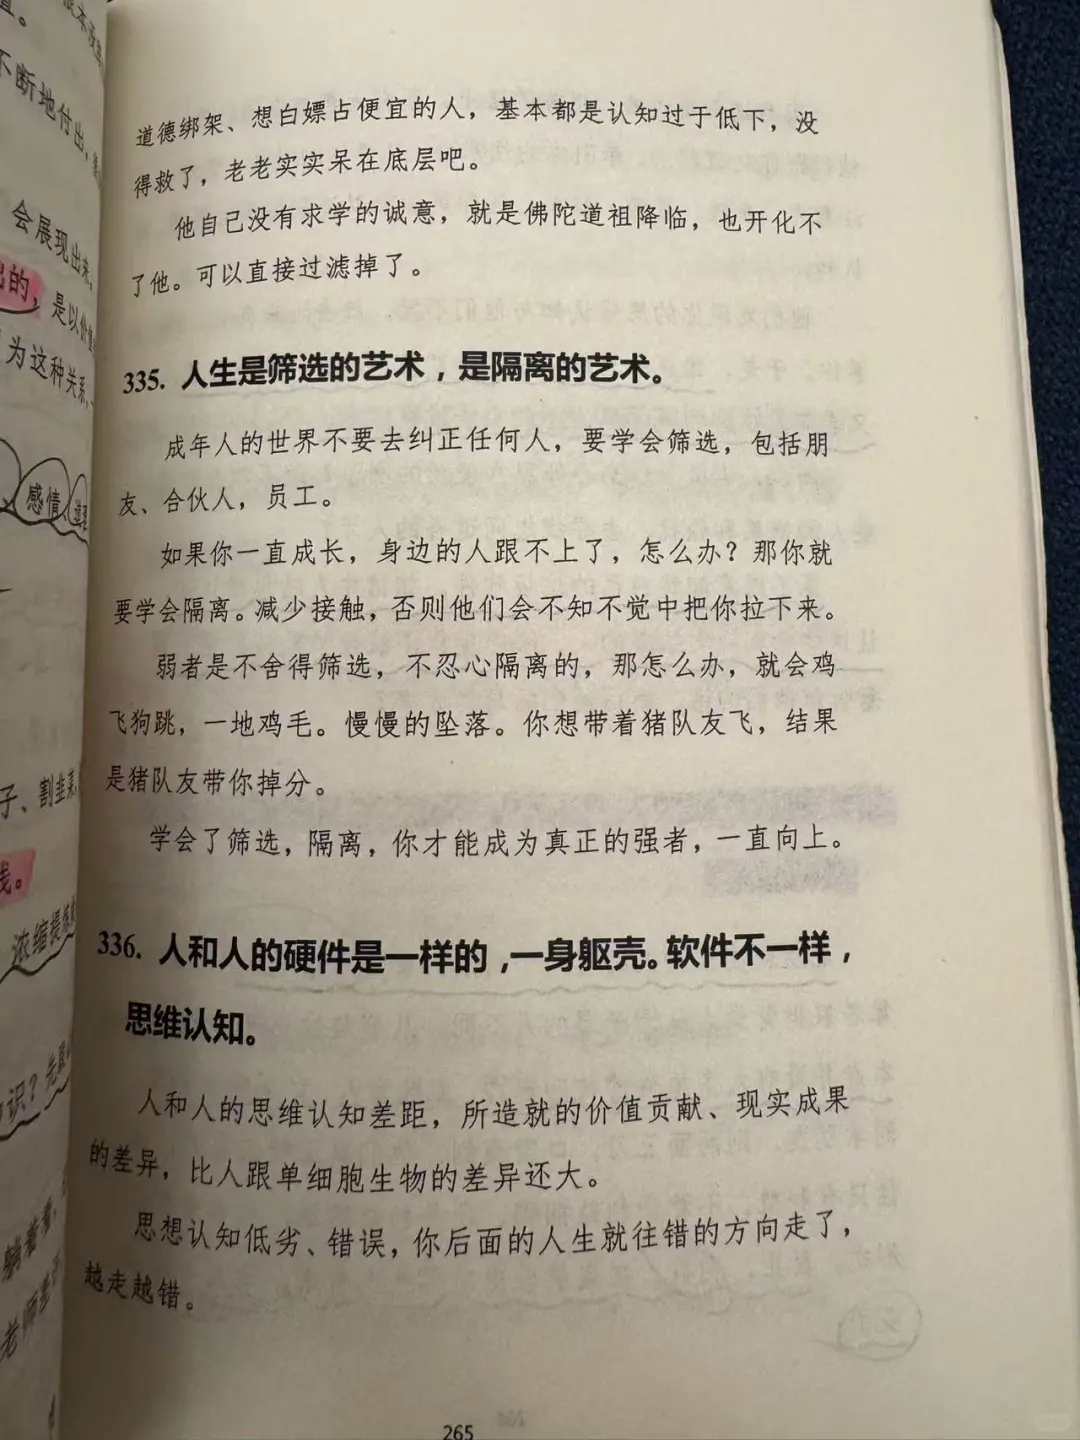 不断地付出,
会展现出来,
出的,是以价值
为这种关系,
感情、道
子、割韭菜,
线。
浓缩提炼
识?先
躺着看,
老师
道德绑架、想白嫖占便宜的人,基本都是认知过于低下,没
得救了,老老实实呆在底层吧。
他自己没有求学的诚意,就是佛陀道祖降临,也开化不
了他。可以直接过滤掉了。
335. 人生是筛选的艺术,是隔离的艺术。
成年人的世界不要去纠正任何人,要学会筛选,包括朋
友、合伙人,员工。
如果你一直成长,身边的人跟不上了,怎么办?那你就
要学会隔离。减少接触,否则他们会不知不觉中把你拉下来。
弱者是不舍得筛选,不忍心隔离的,那怎么办,就会鸡
飞狗跳,一地鸡毛。慢慢的坠落。你想带着猪队友飞,结果
是猪队友带你掉分。
学会了筛选,隔离,你才能成为真正的强者,一直向上。
336. 人和人的硬件是一样的,一身躯壳。软件不一样,
思维认知。
人和人的思维认知差距,所造就的价值贡献、现实成果
的差异,比人跟单细胞生物的差异还大。
思想认知低劣、错误,你后面的人生就往错的方向走了,
越走越错。
265